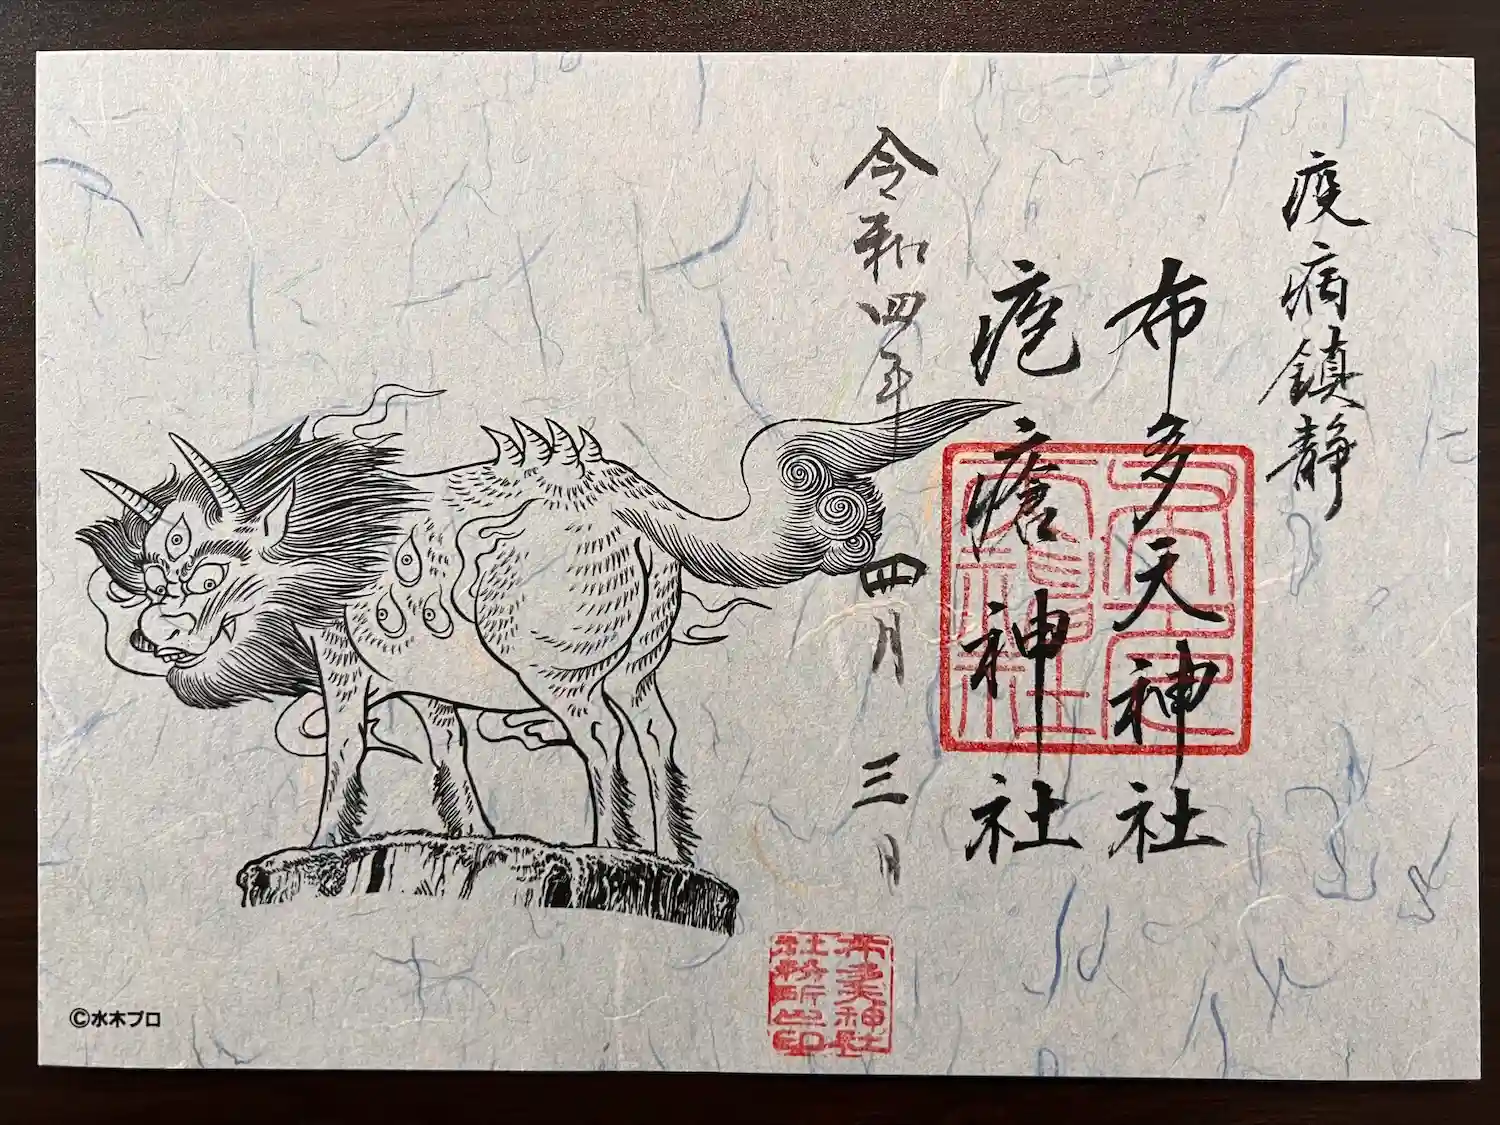 疫病鎮静
布多天神社
疱瘡神社
令和四年四月三日
布多天神社
社務所之印
©水木プロ